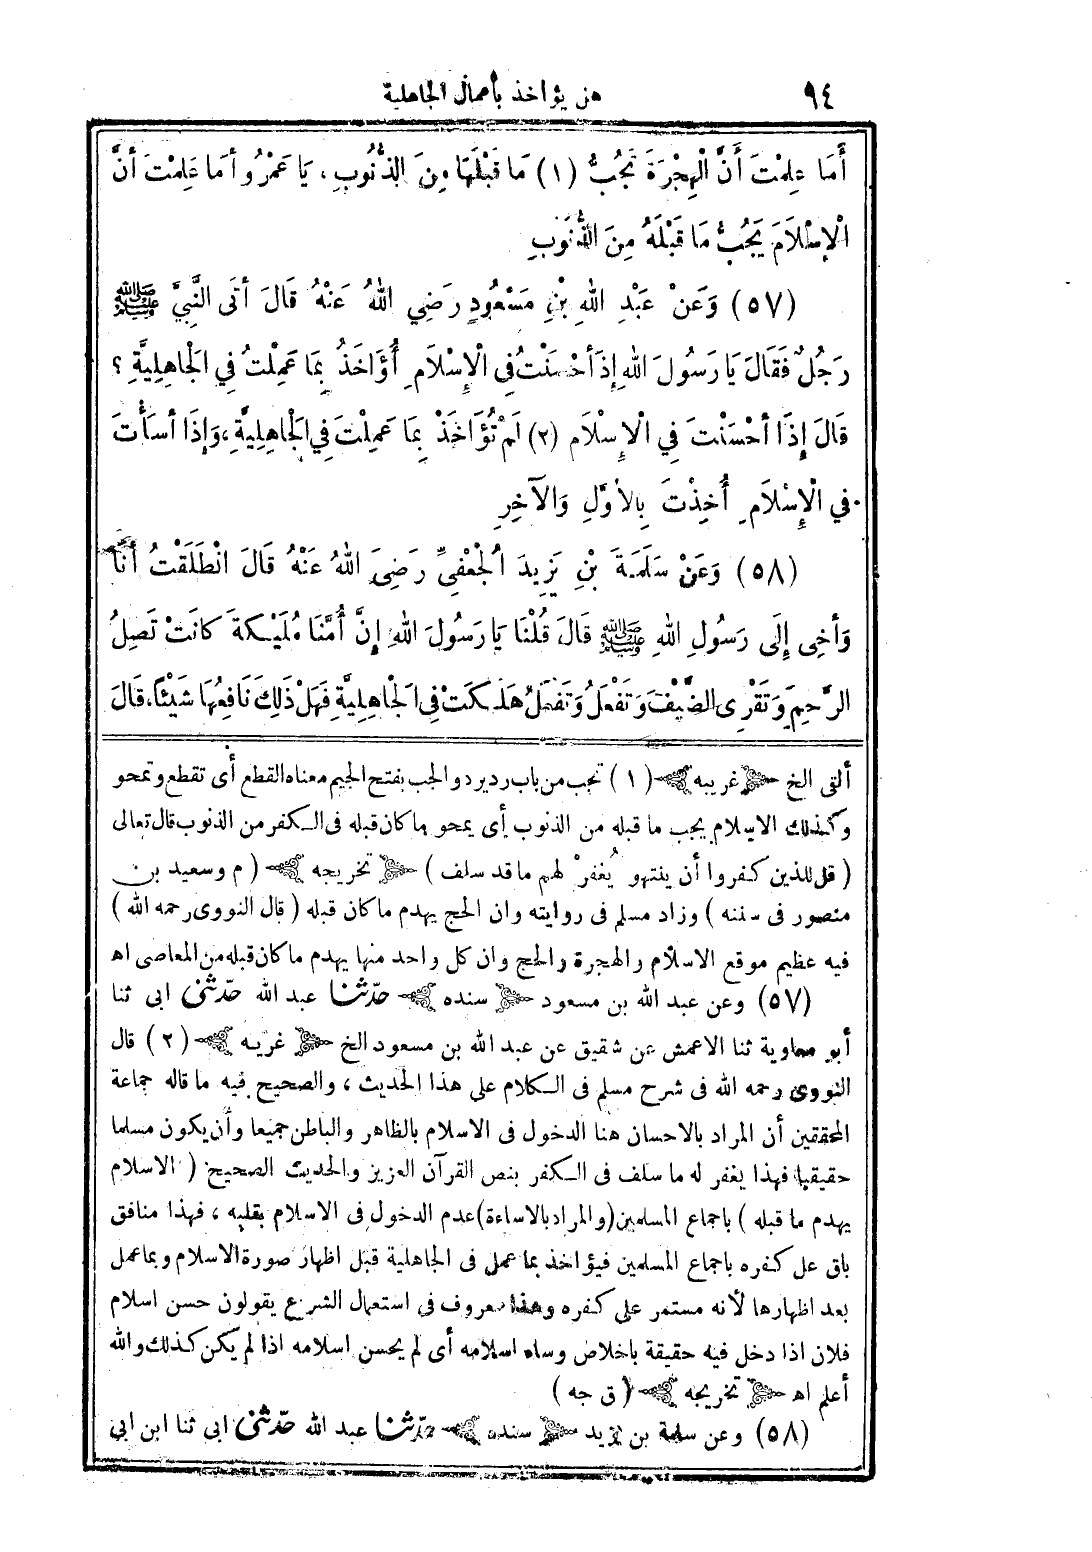 ٩٤
هل يؤاخذ بأعمال الجاهلية
أَمَا عَلِمْتَ أَنَّ الْهِجْرَةَ تَجُبُّ (١) مَا قَبْلَهَا مِنَ الذُّنُوبِ، يَا عَمْرُو أَمَا عَلِمْتَ أَنَّ
الْإِسْلَامَ يَجُبُّ مَا قَبْلَهُ مِنَ الذُّنُوبِ
(٥٧) وَعَنْ عَبْدِ اللهِ بْنِ مَسْعُودٍ رَضِي اللهُ عَنْهُ قَالَ أَتَى النَّبِيَّ ﷺ
رَجُلٌ فَقَالَ يَا رَسُولَ اللهِ إِذَا أَحْسَنْتُ فِي الْإِسْلَامِ أُؤَاخَذُ بِمَا عَمِلْتُ فِي الْجَاهِلِيَّةِ ؟
قَالَ إِذَا أَحْسَنْتَ فِي الْإِسْلَامِ (٢) لَمْ تُؤَاخَذْ بِمَا عَمِلْتَ فِي الْجَاهِلِيَّةِ، وَإِذَا أَسَأْتَ
فِي الْإِسْلَامِ أُخِذْتَ بِالْأَوَّلِ وَالْآخِرِ
(٥٨) وَعَنْ سَلَمَةَ بْنِ يَزِيدَ الْجُعْفِيِّ رَضِيَ اللهُ عَنْهُ قَالَ انْطَلَقْتُ أَنَا
وَأَخِي إِلَى رَسُولِ اللهِ ﷺ قَالَ قُلْنَا يَا رَسُولَ اللهِ إِنَّ أُمَّنَا مُلَيْكَةَ كَانَتْ تَصِلُ
الرَّحِمَ وَتَقْرِى الضَّيْفَ وَتَفْعَلُ وَتَفْعَلُ هَلَكَتْ فِي الْجَاهِلِيَّةِ فَهَلْ ذَلِكَ نَافِعُهَا شَيْئًا، قَالَ
ألقى الخ ﴿غريبه﴾ (١) تجب من باب رد يرد والجب بفتح الجيم معناه القطع أى تقطع وتمحو
وكذلك الاسلام يجب ما قبله من الذنوب أى يمحو ما كان قبله فى الكفر من الذنوب قال تعالى
(قل للذين كفروا أن ينتهو يُغفرْ لهم ما قد سلف) ﴿تخريجه﴾ (م وسعيد بن
منصور فى سننه) وزاد مسلم فى روايته وان الحج يهدم ما كان قبله (قال النووى رحمه الله)
فيه عظيم موقع الاسلام والهجرة والحج وان كل واحد منها يهدم ما كان قبله من المعاصى اهـ
(٥٧) وعن عبد الله بن مسعود ﴿سنده﴾ حدّثنا عبد الله حدّثنى ابى ثنا
أبو معاوية ثنا الاعمش عن شقيق عن عبد الله بن مسعود الخ ﴿غريبه﴾ (٢) قال
النووى رحمه الله فى شرح مسلم فى الكلام على هذا الحديث، والصحيح فيه ما قاله جماعة
المحققين أن المراد بالاحسان هنا الدخول فى الاسلام بالظاهر والباطن جميعا وأن يكون مسلما
حقيقيا فهذا يغفر له ما سلف فى الكفر بنص القرآن العزيز والحديث الصحيح (الاسلام
يهدم ما قبله) باجماع المسلمين (والمراد بالاساءة) عدم الدخول فى الاسلام بقلبه، فهذا منافق
باق على كفره باجماع المسلمين فيؤاخذ بما عمل فى الجاهلية قبل اظهار صورة الاسلام وبما عمل
بعد اظهارها لأنه مستمر على كفره وهذا معروف فى استعمال الشرع يقولون حسن اسلام
فلان اذا دخل فيه حقيقة باخلاص وساء اسلامه أى لم يحسن اسلامه اذا لم يكن كذلك والله
أعلم اهـ ﴿تخريجه﴾ (ق جه)
(٥٨) وعن سلمة بن يزيد ﴿سنده﴾ حدّثنا عبد الله حدّثنى ابى ثنا ابن ابى